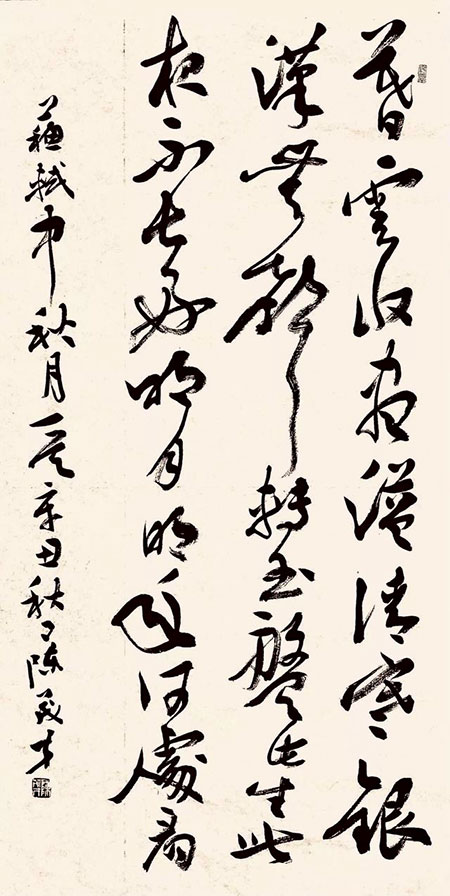 暮雲收盡溢清寒銀
漢無聲轉玉盤此生此
夜不長好明月明年何處看
蘇軾中秋月辛丑秋陳義才